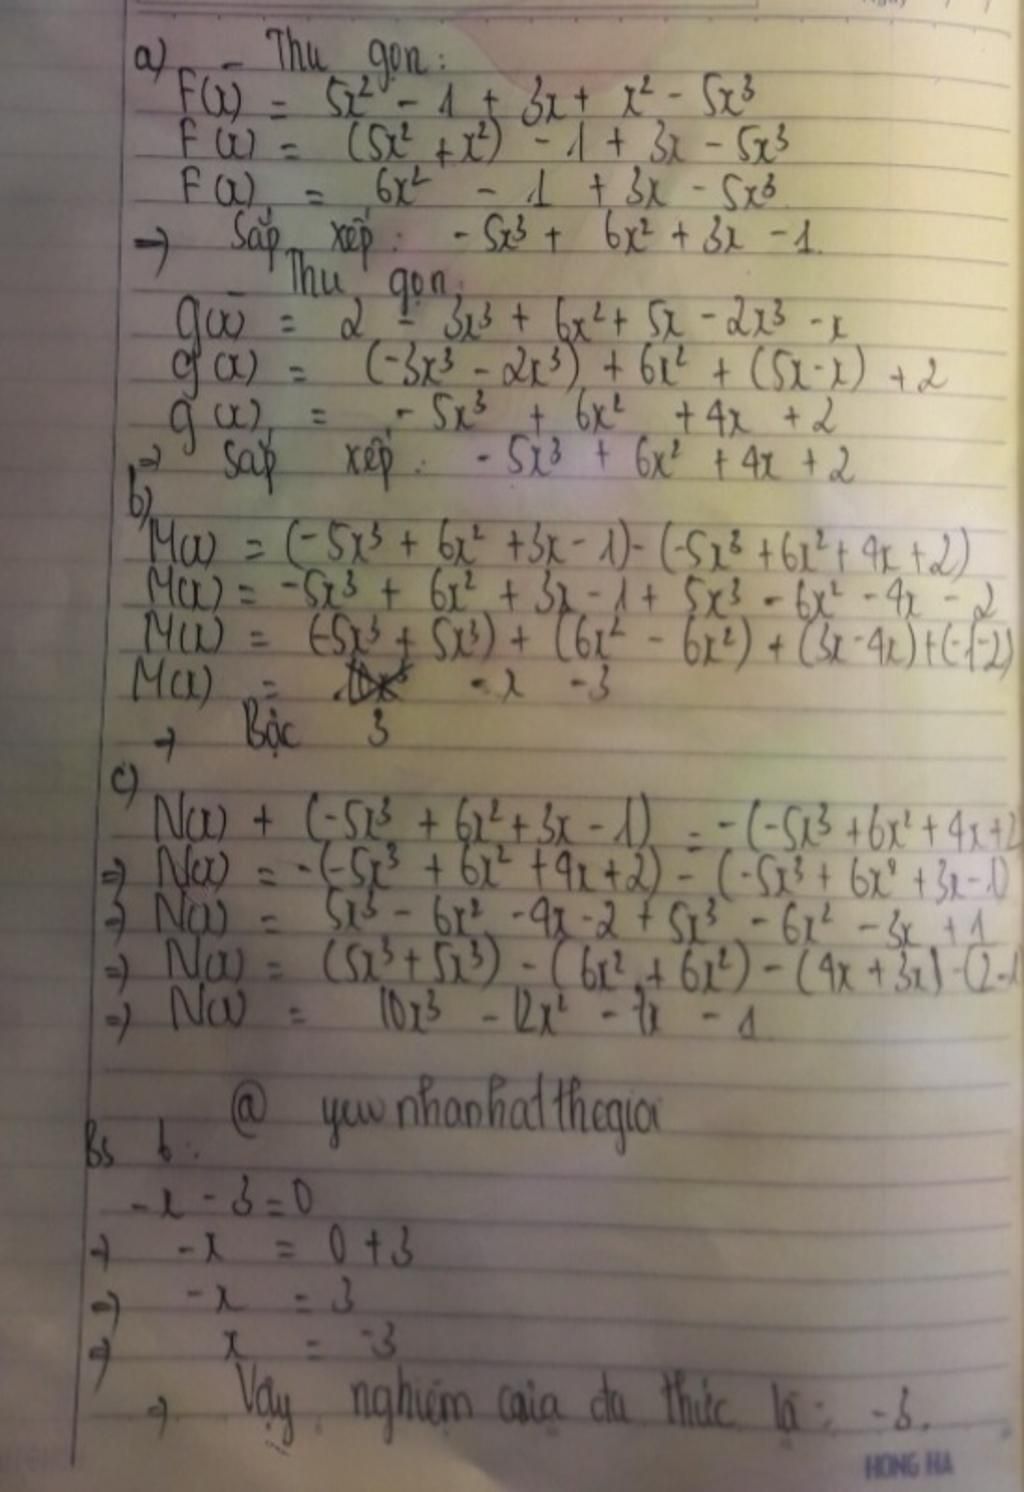 a) - Thu gọn:
F(x) = 5x² - 1 + 3x + x² - 5x³
F(x) = (5x² + x²) - 1 + 3x - 5x³
F(x) = 6x² - 1 + 3x - 5x³
=> Sắp xếp: - 5x³ + 6x² + 3x - 1.
- Thu gọn:
g(x) = 2 - 3x³ + 6x² + 5x - 2x³ - x
g(x) = (-3x³ - 2x³) + 6x² + (5x - x) + 2
g(x) = - 5x³ + 6x² + 4x + 2
=> Sắp xếp: - 5x³ + 6x² + 4x + 2
b)
M(x) = (-5x³ + 6x² + 3x - 1) - (-5x³ + 6x² + 4x + 2)
M(x) = -5x³ + 6x² + 3x - 1 + 5x³ - 6x² - 4x - 2
M(x) = (-5x³ + 5x³) + (6x² - 6x²) + (3x - 4x) + (-1-2)
M(x) = - x - 3
=> Bậc 3
c)
N(x) + (-5x³ + 6x² + 3x - 1) = -(-5x³ + 6x² + 4x + 2
=> N(x) = -(-5x³ + 6x² + 4x + 2) - (-5x³ + 6x² + 3x - 1)
=> N(x) = 5x³ - 6x² - 4x - 2 + 5x³ - 6x² - 3x + 1
=> N(x) = (5x³ + 5x³) - (6x² + 6x²) - (4x + 3x) - (2-1
=> N(x) = 10x³ - 12x² - 7x - 1
@ yeunhanhatthegioi
Bs b:
-x - 3 = 0
=> -x = 0 + 3
=> -x = 3
=> x = -3
=> Vậy nghiệm của đa thức là: -3.
HONG HA